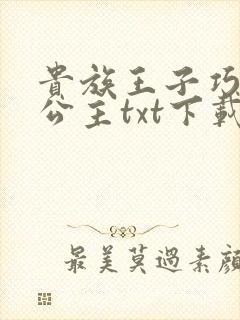 貴族王子巧
公主txt下載
最美莫過素顏